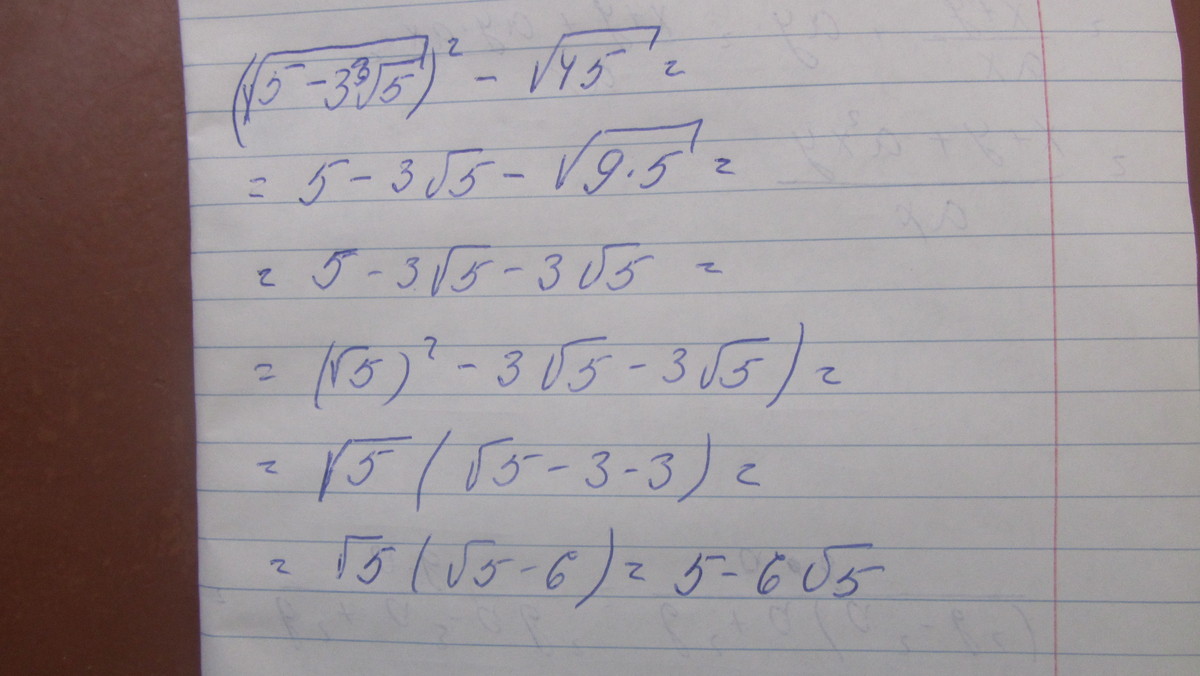 (√(5 - 3∛5))² - √45 =
= 5 - 3√5 - √(9·5) =
= 5 - 3√5 - 3√5 =
= (√5)² - 3√5 - 3√5) =
= √5 (√5 - 3 - 3) =
= √5 (√5 - 6) = 5 - 6√5